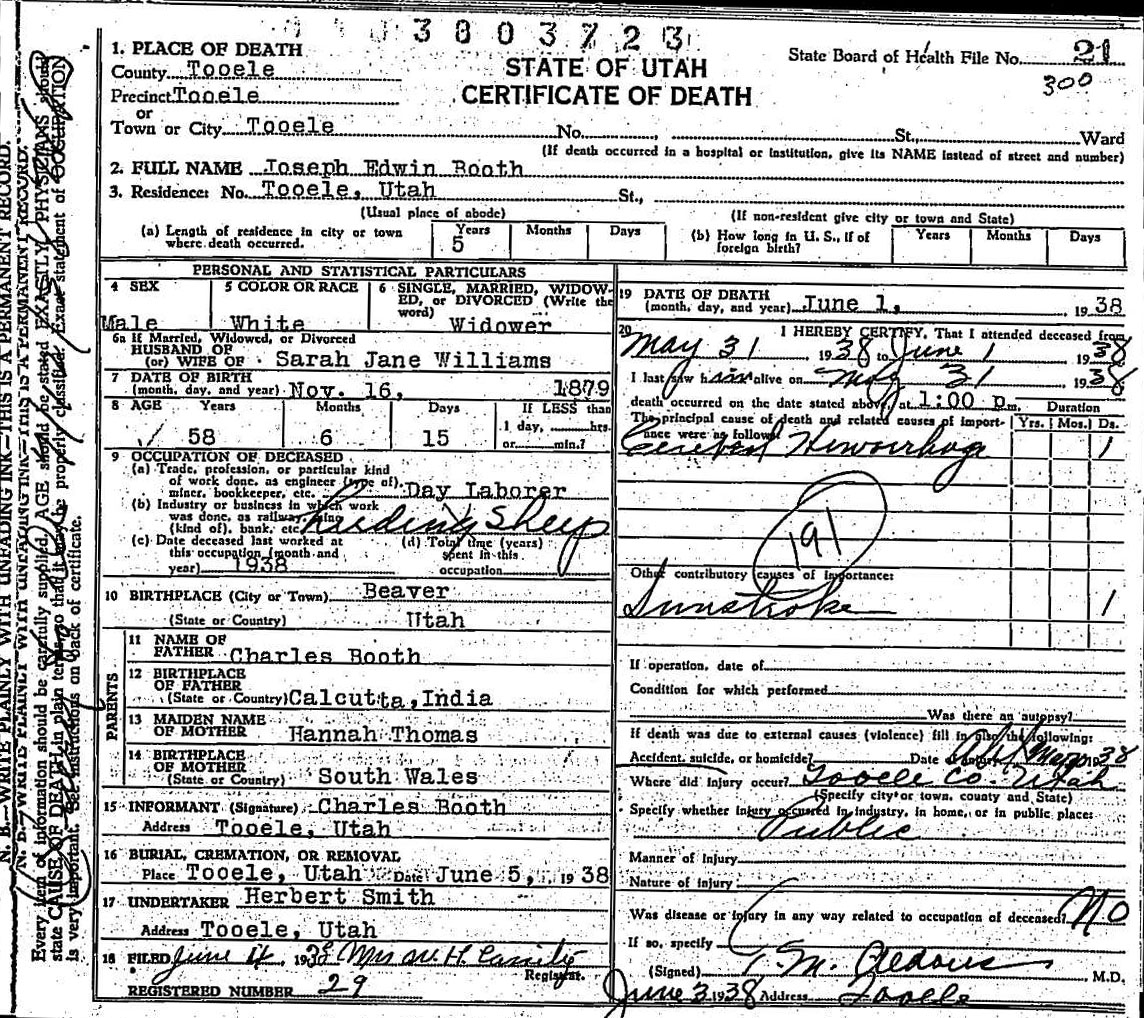 3803723
STATE OF UTAH
CERTIFICATE OF DEATH
State Board of Health File No. 21
300
1. PLACE OF DEATH
County Tooele
Precinct Tooele
or
Town or City Tooele No. , St., Ward
(If death occurred in a hospital or institution, give its NAME instead of street and number)
2. FULL NAME Joseph Edwin Booth
3. Residence: No. Tooele, Utah St.,
(Usual place of abode) (If non-resident give city or town and State)
(a) Length of residence in city or town where death occurred. Years 5 Months Days
(b) How long in U. S., if of foreign birth? Years Months Days
PERSONAL AND STATISTICAL PARTICULARS
4 SEX Male
5 COLOR OR RACE White
6 SINGLE, MARRIED, WIDOWED, or DIVORCED (Write the word) Widower
6a If Married, Widowed, or Divorced
HUSBAND OF
(or) WIFE OF Sarah Jane Williams
7 DATE OF BIRTH
(month, day, and year) Nov. 16, 1879
8 AGE Years Months Days If LESS than
58 6 15 1 day, hrs.
or min.?
9 OCCUPATION OF DECEASED
(a) Trade, profession, or particular kind
of work done, as engineer (type of),
miner, bookkeeper, etc. Day Laborer
(b) Industry or business in which work
was done, as railway, mine
(kind of), bank, etc. Herding Sheep
(c) Date deceased last worked at
this occupation (month and
year) 1938
(d) Total time (years)
spent in this
occupation
10 BIRTHPLACE (City or Town) Beaver
(State or Country) Utah
PARENTS
11 NAME OF
FATHER Charles Booth
12 BIRTHPLACE
OF FATHER
(State or Country) Calcutta, India
13 MAIDEN NAME
OF MOTHER Hannah Thomas
14 BIRTHPLACE
OF MOTHER
(State or Country) South Wales
15 INFORMANT (Signature) Charles Booth
Address Tooele, Utah
16 BURIAL, CREMATION, OR REMOVAL
Place Tooele, Utah Date June 5, 1938
17 UNDERTAKER Herbert Smith
Address Tooele, Utah
18 FILED June 4, 1938 Mrs
Registrar.
REGISTERED NUMBER 29
19 DATE OF DEATH
(month, day, and year) June 1, 1938
20 I HEREBY CERTIFY, That I attended deceased from
May 31 1938 to June 1 1938
I last saw him alive on May 31 1938
death occurred on the date stated above, at 1:00 p.m. Duration
The principal cause of death and related causes of importance were as follows: Yrs. Mos. Ds.
Cerebral Hemorrhag 1
191
Other contributory causes of importance:
Sunstroke 1
If operation, date of
Condition for which performed
Was there an autopsy?
If death was due to external causes (violence) fill in also the following:
Accident, suicide, or homicide? Date 38
Where did injury occur? Tooele Co. Utah
(Specify city or town, county and State)
Specify whether injury occurred in industry, in home, or in public place:
Public
Manner of Injury
Nature of injury
Was disease or injury in any way related to occupation of deceased? No
If so, specify
(Signed) M.D.
June 3 1938 Address Tooele
N. B.—WRITE PLAINLY WITH UNFADING INK—THIS IS A PERMANENT RECORD.
Every item of information should be carefully supplied. AGE should be stated EXACTLY. PHYSICIANS should
state CAUSE OF DEATH in plain terms, so that it may be properly classified. Exact statement of OCCUPATION
is very important. See instructions on back of certificate.